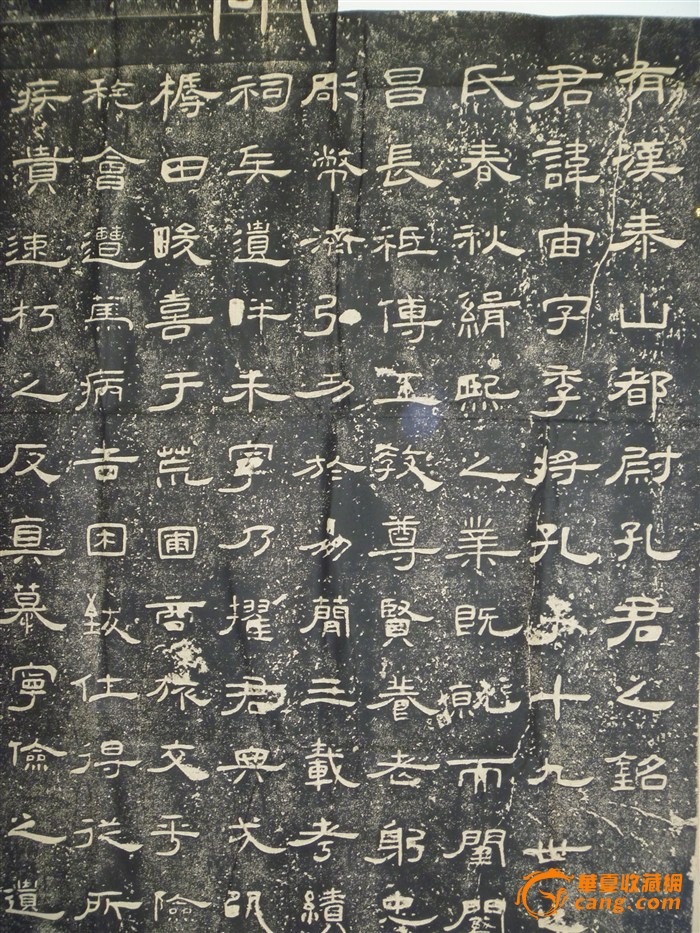 有漢泰山都尉孔君之銘
君諱宙字季將孔子十九世之
氏春秋緝熙之業既就而閨閾
昌長祗傅五教尊賢養老躬忠
彫幣濟弘功於易簡三載考績
祠兵遺畔未寧乃擢君典戎以
耨田畯喜于荒圃商旅交乎險
稔會遭篤病告困致仕得從所
疾貴速朽之反真慕寧儉之遺
華夏收藏網
cang.com